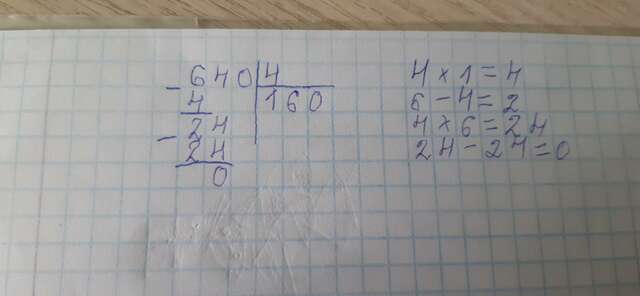 - 640 4
4 160
- 24
24
0
4 × 1 = 4
6 - 4 = 2
4 × 6 = 24
24 - 24 = 0